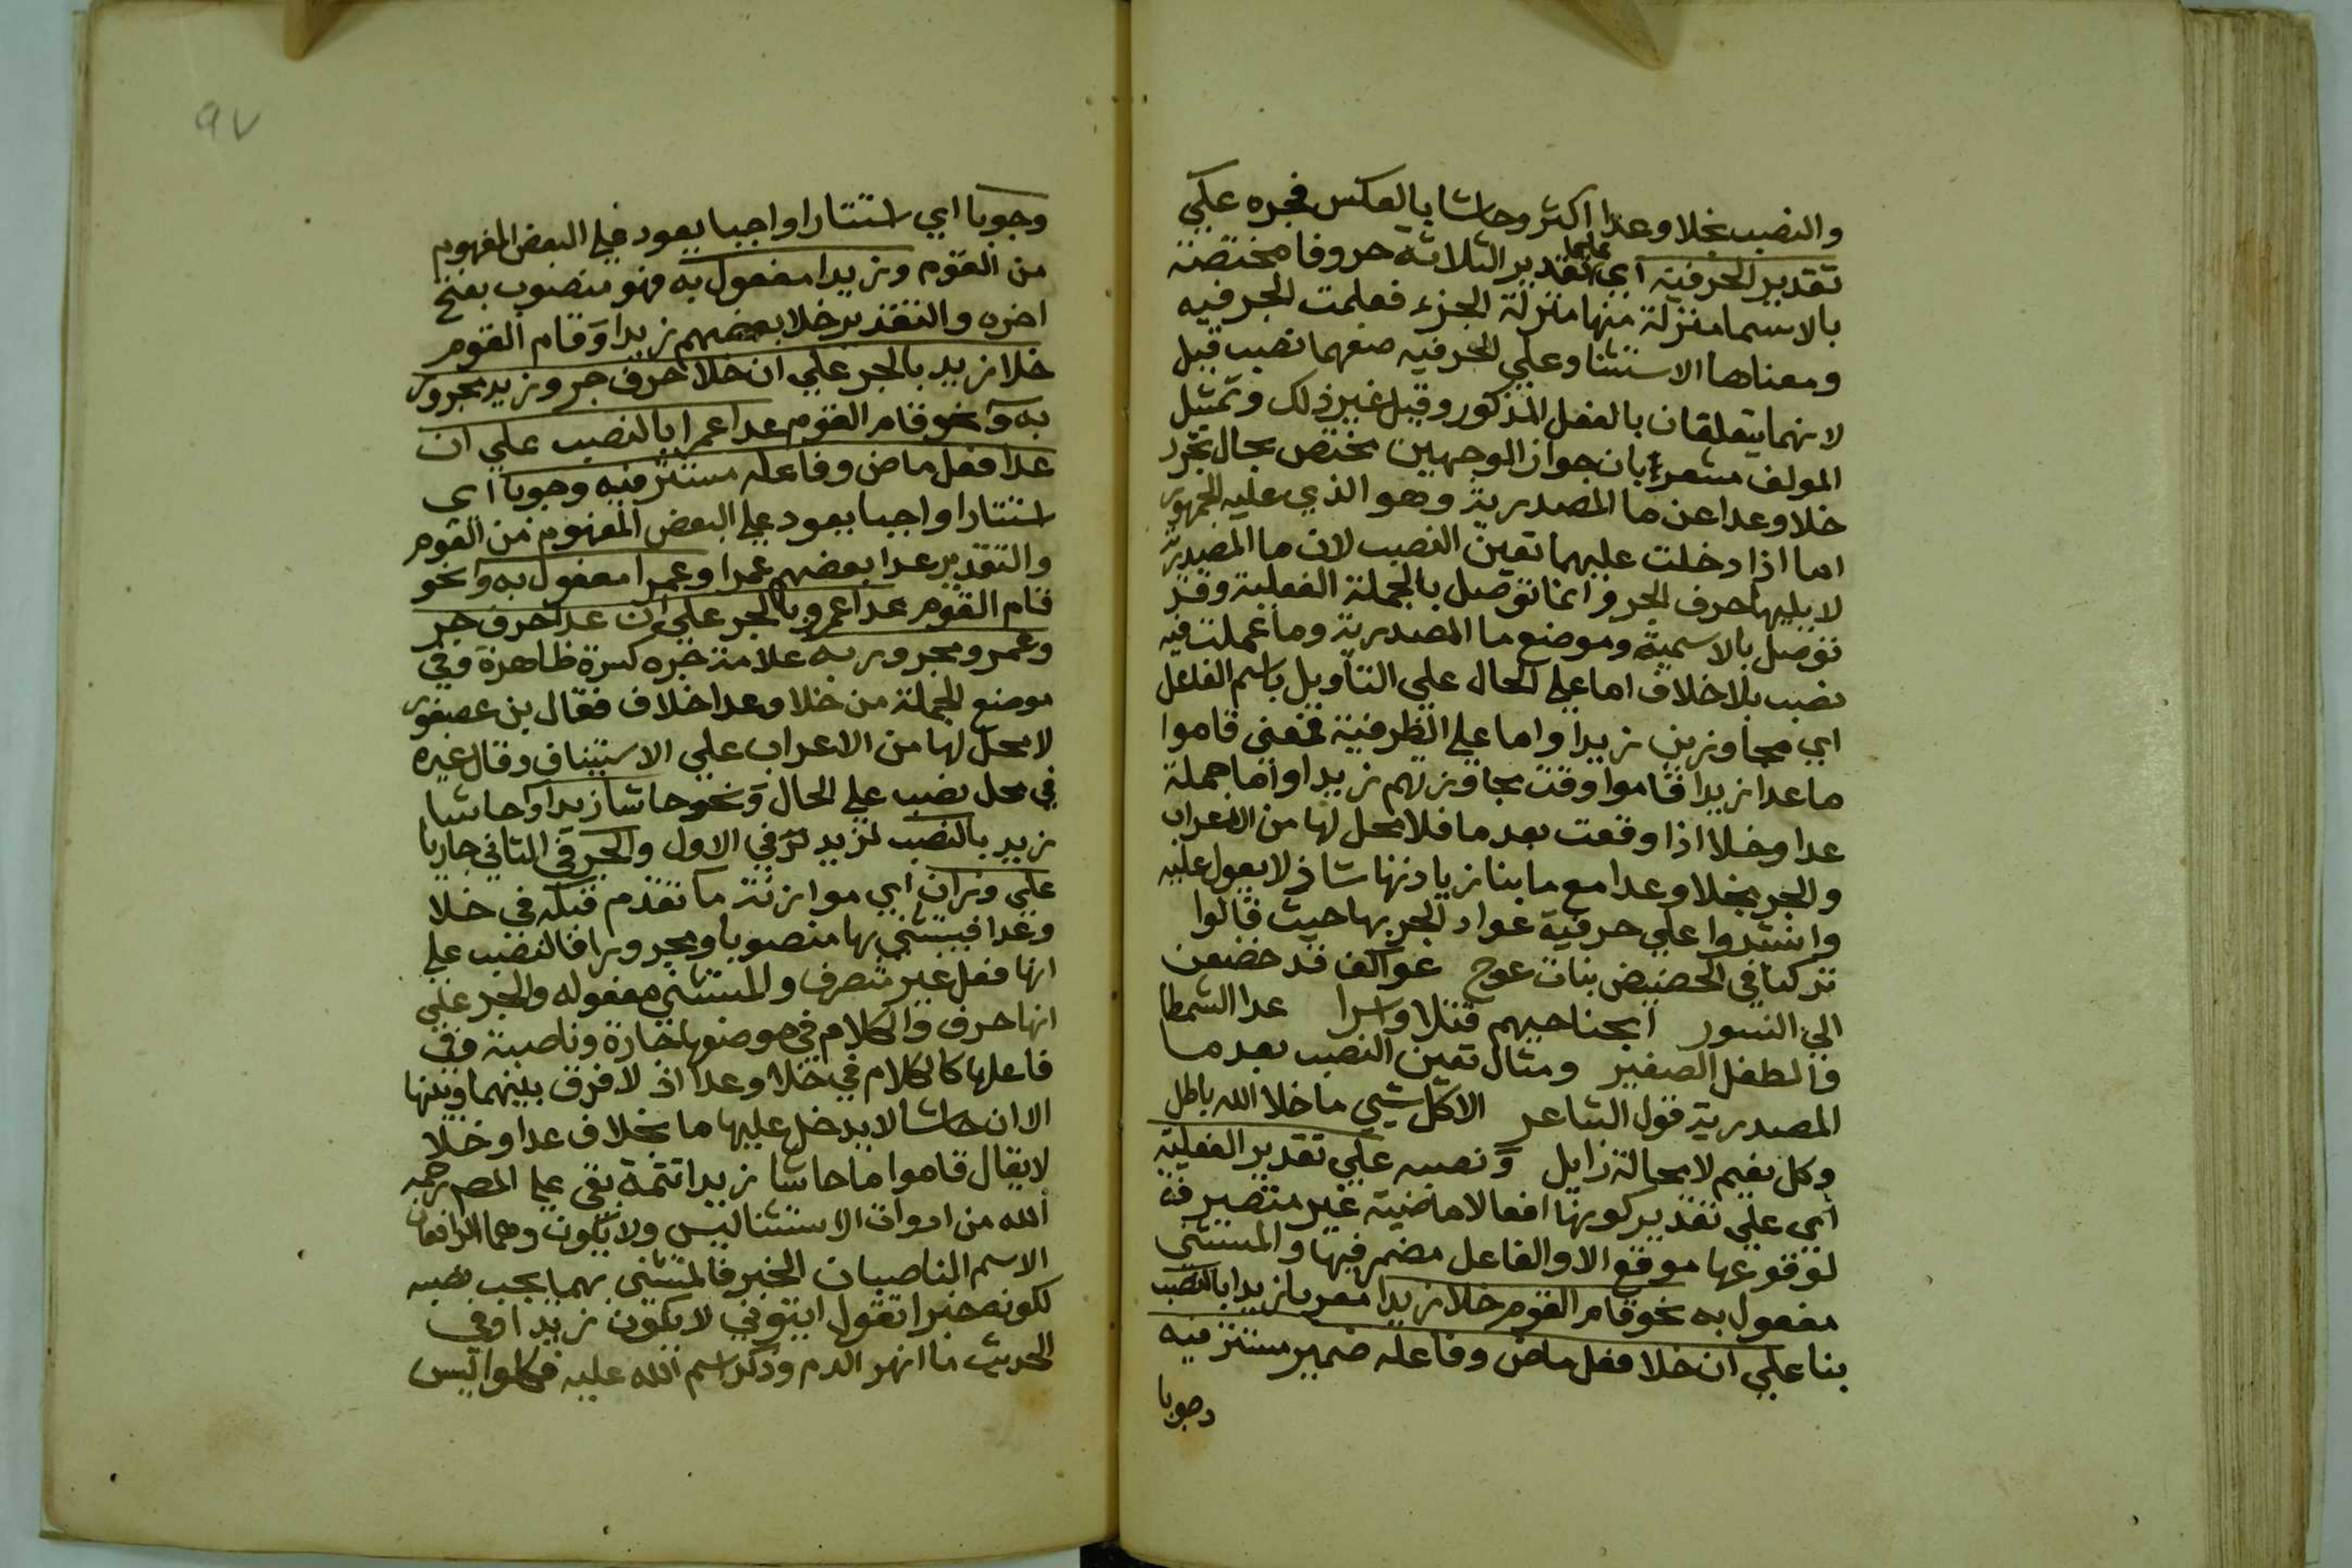 والنصب بخلا وعدا اكثر وحاشا بالعكس فجره علي
تقدير الحرفية اي تقدير الثلاثة حروفا مختصة
بالاسما منزلة منها منزلة الجزء فعلمت الجر فيه
ومعناها الاستثنا وعلي الحرفيه صنعهما نصب قيل
لانهما يتعلقان بالفعل المذكور وقيل غير ذلك وتمثيل
المولف مشعر بان جواز الوجهين مختص بحال تجرد
خلا وعدا عن ما المصدرية وهو الذي عليه الجمهور
اما اذا دخلت عليهما تعين النصب لان ما المصدرية
لا يليها حرف الجر وانما توصل بالجملة الفعلية وقد
توصل بالاسمية وموضع ما المصدرية وما عملت فيه
نصب بلا خلاف اما علي الحال علي التاويل باسم الفاعل
اي مجاوزين زيدا واما علي الظرفية فمعني قاموا
ما عدا زيدا قاموا وقت مجاوزتهم زيدا واما جملة
عدا وخلا اذا وقعت بعد ما فلا محل لها من الاعراب
والجر بخلا وعدا مع ما بنا زيادتها شاذ لا يعول عليه
وانشدوا علي حرفية عوا د الجر بها حيث قالوا
تركنا في الحضيض بنات عوج عواكف قد خضعن
الي النسور ابحنا حيهم قتلا واسرا عدا الشمطا
والطفل الصغير ومثال تعين النصب بعد ما
المصدرية قول الشاعر الا كل شيي ما خلا الله باطل
وكل نعيم لا محالة زايل ونصبه علي تقدير الفعلية
اي علي تقدير كونها افعالا ماضية غير متصرفة
لوقوعها موقع الا والفاعل مضمر فيها والمستثني
مفعول به نحو قام القوم خلا زيدا معربا زيدا بالنصب
بنا علي ان خلا فعل ماض وفاعله ضمير مستتر فيه
وجوبا
٩٧
وجوبا اي استتارا واجبا يعود علي البعض المفهوم
من القوم وزيدا مفعول به فهو منصوب بفتح
اخره والتقدير خلا بعضهم زيدا وقام القوم
خلا زيد بالجر علي ان خلا حرف جر وزيد مجرور
به ونحو قام القوم عدا عمرا بالنصب علي ان
عدا فعل ماض وفاعله مستتر فيه وجوبا اي
استتارا واجبا يعود علي البعض المفهوم من القوم
والتقدير عدا بعضهم عمرا وعمرا مفعول به ونحو
قام القوم عدا عمرو بالجر علي ان عدا حرف جر
وعمرو مجرور به علامة جره كسرة ظاهرة وفي
موضع الجملة من خلا وعدا خلاف فقال بن عصفور
لا محل لها من الاعراب علي الاستيناف وقال غيره
في محل نصب علي الحال ونحو حاشا زيدا وحاشا
زيد بالنصب لزيد في الاول والجر في الثاني جاريا
علي وزان اي موازنة ما تقدم قبله في خلا
وعدا فيستثني بها منصوبا ومجرورا فالنصب علي
انها فعل غير متصرف والمستثني مفعوله والجر علي
انها حرف والكلام في موضعها جارة وناصبة وفي
فاعلها كالكلام في خلا وعدا اذ لا فرق بينهما وبينها
الا ان حاشا لا يدخل عليها ما بخلاف عدا وخلا
لا يقال قاموا ما حاشا زيدا تتمة بقي علي المصر رحمه
الله من ادوات الاستثنا ليس ولا يكون وهما الرافعان
الاسم الناصبان الخبر فالمستثني بهما يجب نصبه
لكونه خبرا تقول ايتوني لا يكون زيدا وفي
الحديث ما انهر الدم وذكر اسم الله عليه فكلوا ليس